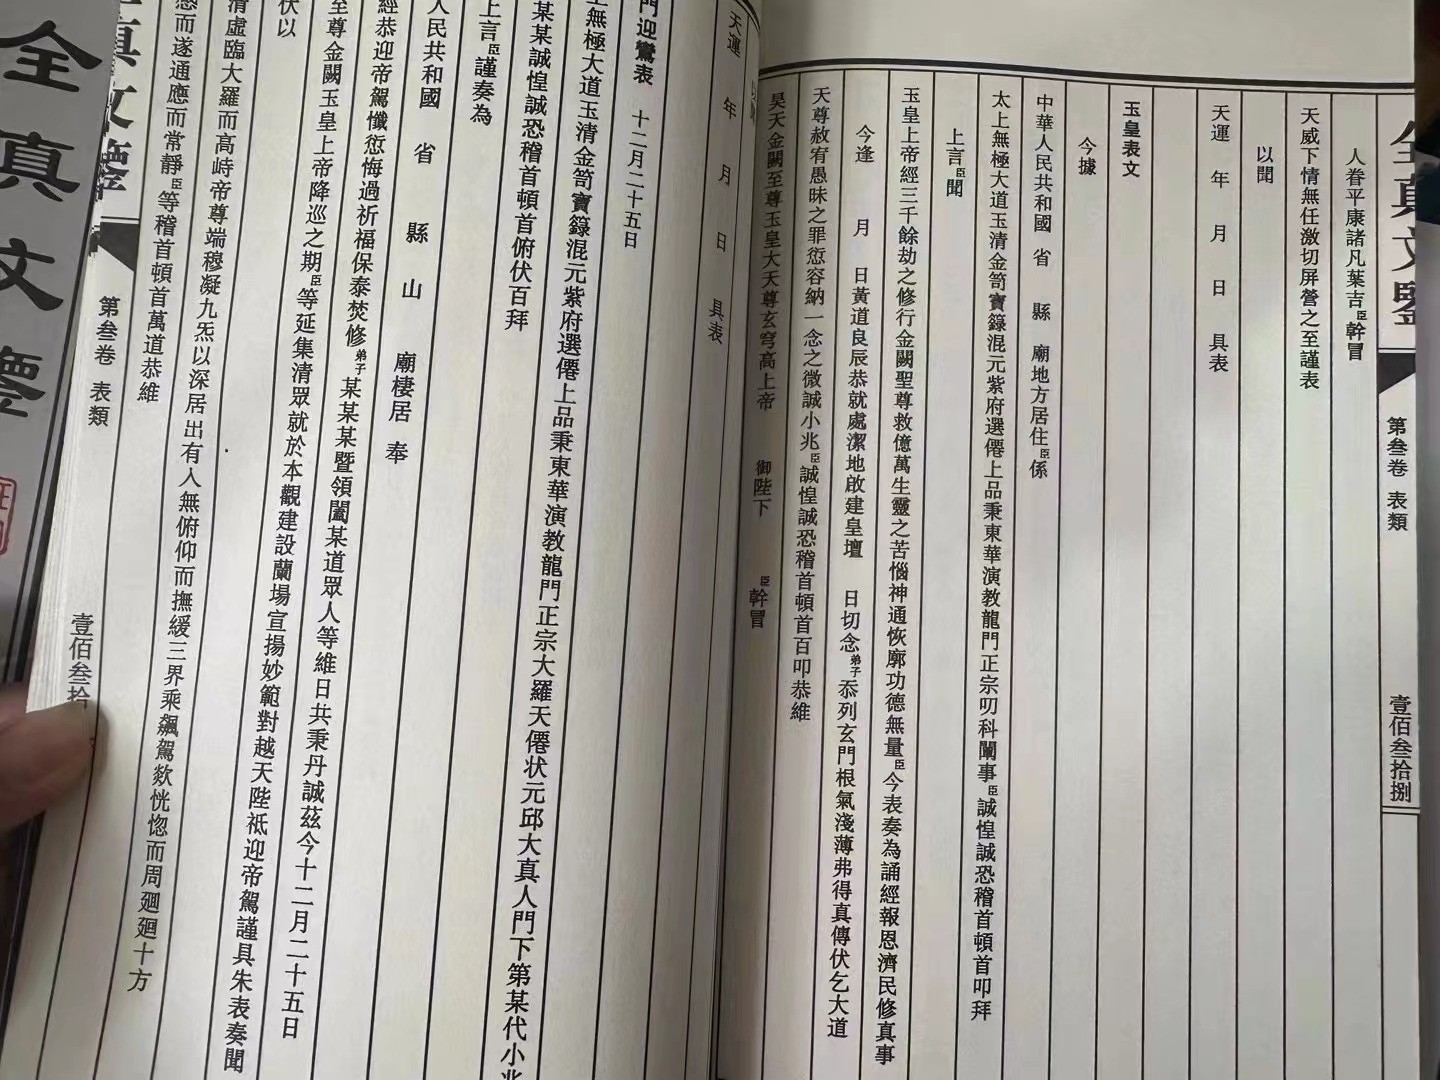 全真文鑒
第叁卷 表類
壹佰叁拾捌
人眷平康諸凡葉吉臣幹冒
天威下情無任激切屏營之至謹表
以聞
天運 年 月 日 具表
玉皇表文
今據
中華人民共和國 省 縣 廟地方居住臣係
太上無極大道玉清金笥寶籙混元紫府選僊上品秉東華演教龍門正宗叨科闡事臣誠惶誠恐稽首頓首叩拜
上言臣聞
玉皇上帝經三千餘劫之修行金闕聖尊救億萬生靈之苦惱神通恢廓功德無量臣今表奏為誦經報恩濟民修真事
今逢 月 日黃道良辰恭就處潔地啟建皇壇 日切念弟子忝列玄門根氣淺薄弗得真傳伏乞大道
天尊赦宥愚昧之罪愆容納一念之微誠小兆臣誠惶誠恐稽首頓首百叩恭維
昊天金闕至尊玉皇大天尊玄穹高上帝 御陛下 臣幹冒
天運 年 月 日 具表
門迎鸞表 十二月二十五日
上無極大道玉清金笥寶籙混元紫府選僊上品秉東華演教龍門正宗大羅天僊状元邱大真人門下第某代小兆
某某誠惶誠恐稽首頓首俯伏百拜
上言臣謹奏為
人民共和國 省 縣 山 廟棲居 奉
經恭迎帝駕懺愆悔過祈福保泰焚修弟子某某某暨領闔某道眾人等維日共秉丹誠茲今十二月二十五日
至尊金闕玉皇上帝降巡之期臣等延集清眾就於本觀建設蘭場宣揚妙範對越天陛祇迎帝駕謹具朱表奏聞
伏以
清虛臨大羅而高峙帝尊端穆凝九炁以深居出有入無俯仰而撫緩三界乘飆駕欻恍惚而周迴十方
感而遂通應而常靜臣等稽首頓首萬道恭維
真文鑒
第叁卷 表類
壹佰叁拾
全真文鑒